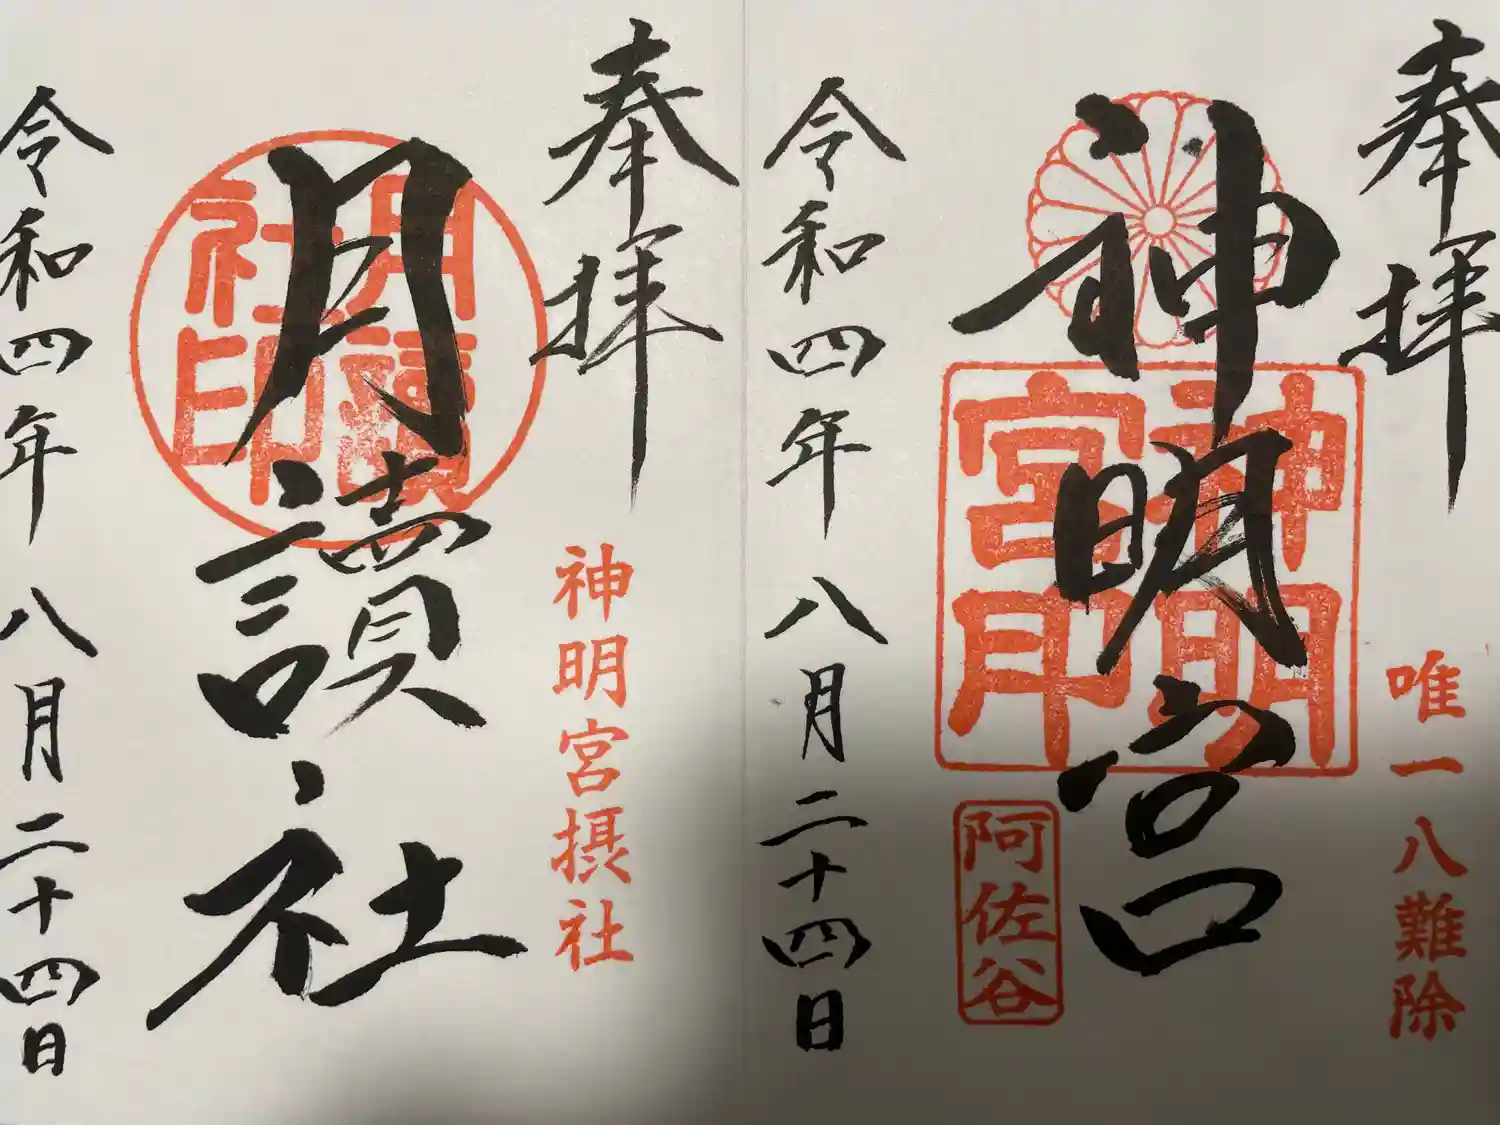 奉拝
唯一八難除
神明宮
神明宮印
阿佐谷
令和四年八月二十四日
奉拝
神明宮摂社
月讀社
月讀社印
令和四年八月二十四日